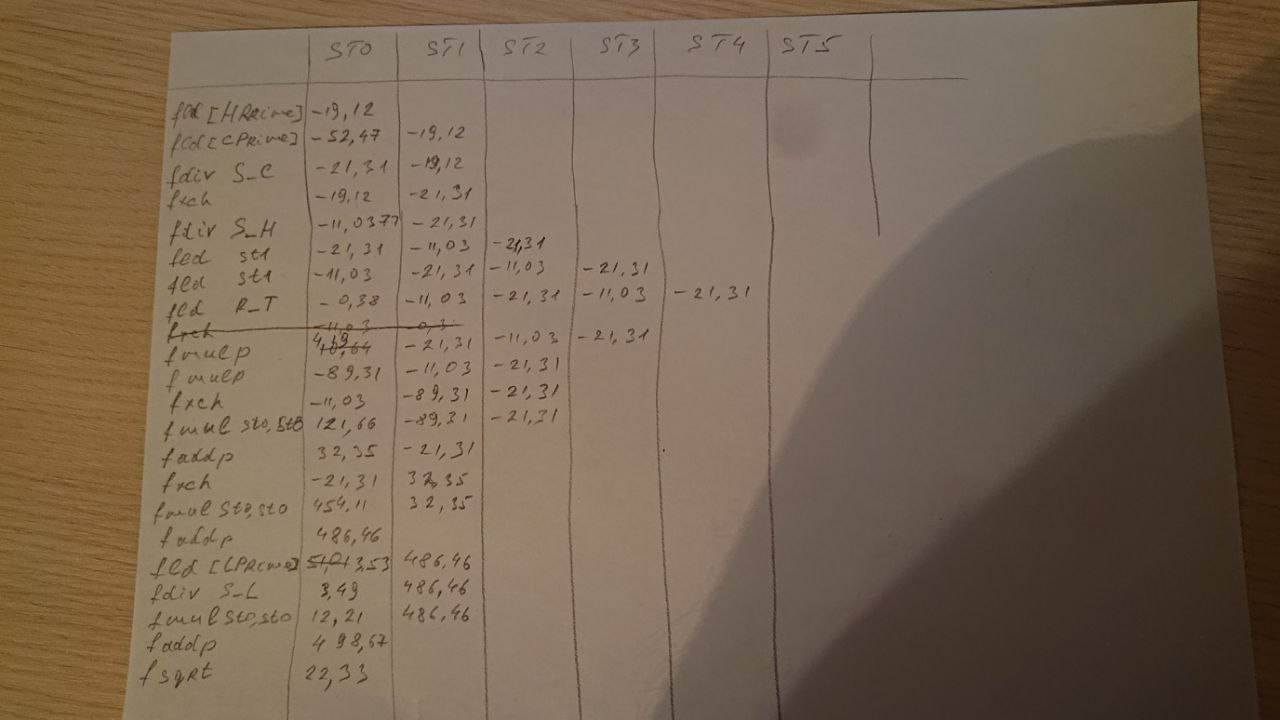 ST0 ST1 ST2 ST3 ST4 ST5
fld [HPrime] -19,12
fld [CPrime] -52,47 -19,12
fdiv S_C -21,31 -19,12
fxch -19,12 -21,31
fdiv S_H -11,0377 -21,31
fld st1 -21,31 -11,03 -21,31
fld st1 -11,03 -21,31 -11,03 -21,31
fld R_T -0,38 -11,03 -21,31 -11,03 -21,31
fxch -11,03
fmulp 4,19 -21,31 -11,03 -21,31
fmulp -89,31 -11,03 -21,31
fxch -11,03 -89,31 -21,31
fmul st0,st0 121,66 -89,31 -21,31
faddp 32,35 -21,31
fxch -21,31 32,35
fmul st0,st0 454,11 32,35
faddp 486,46
fld [LPrime] 3,53 486,46
fdiv S_L 3,49 486,46
fmul st0,st0 12,21 486,46
faddp 498,67
fsqrt 22,33